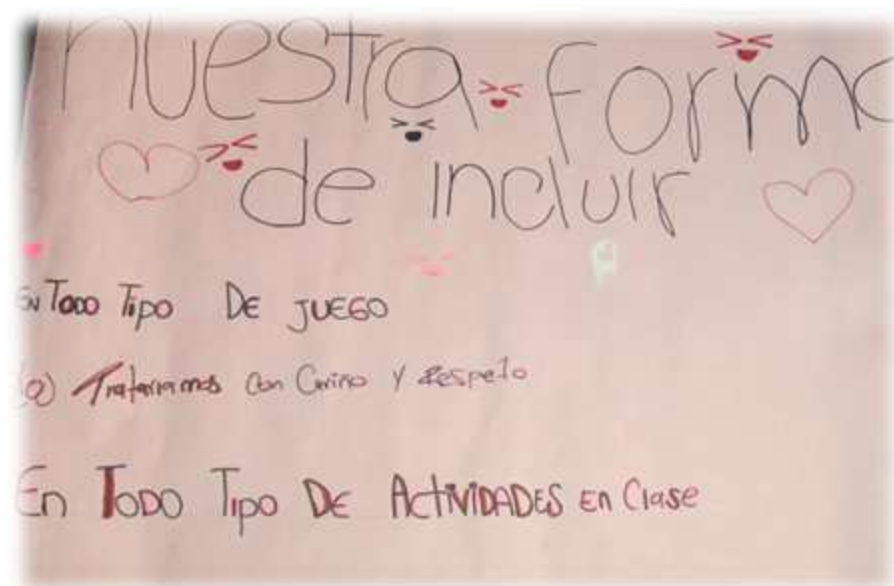 nuestra forma
de incluir
En Todo Tipo De juego
(a) Trataríamos con Cariño y Respeto
En Todo Tipo De Actividades en Clase